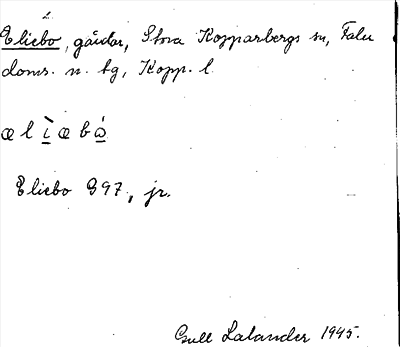 2.
Eliebo, gårdar, Stora Kopparbergs sn, Falu
doms. n. tg, Kopp. l.
æ l ì æ b ȯ́
Eliebo G97, jr.
Gull Lalander 1945.